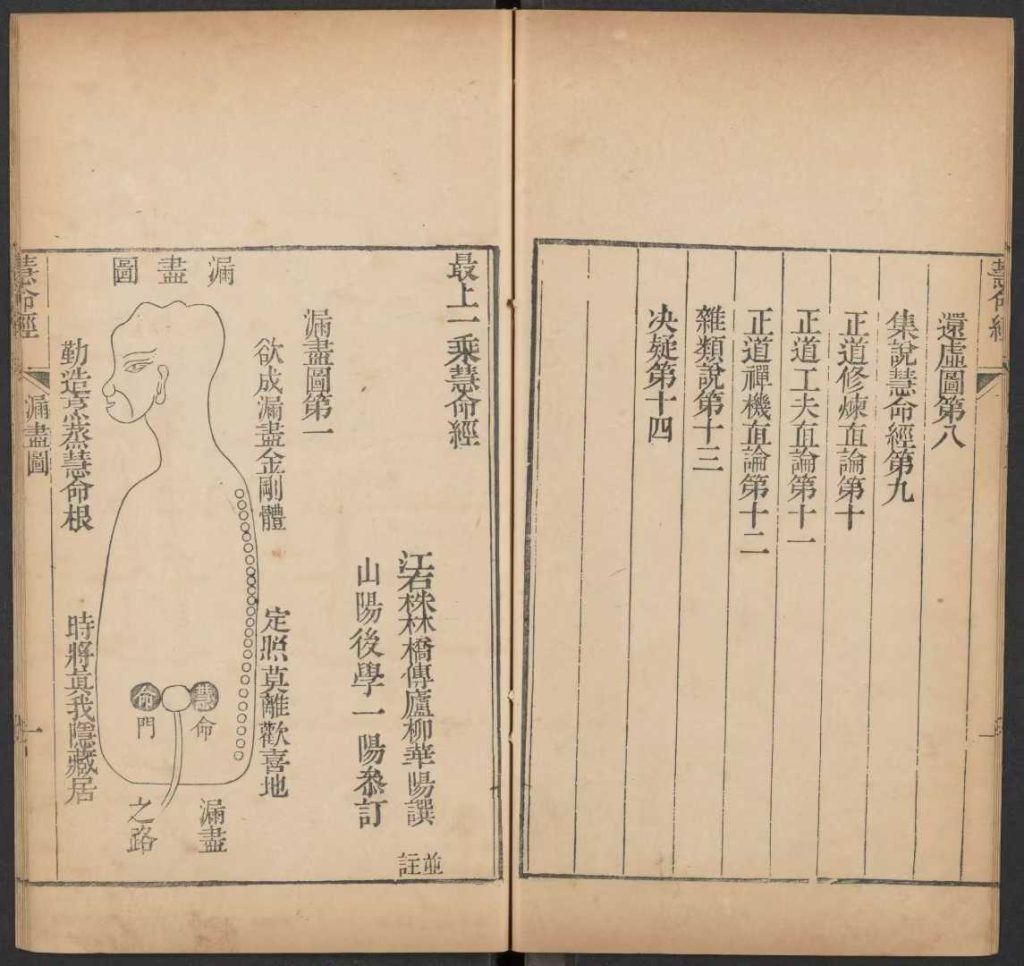 慧命經
還虛圖第八
集說慧命經第九
正道修煉直論第十
正道工夫直論第十一
正道禪機直論第十二
雜類說第十三
决疑第十四
最上一乘慧命經
江右株林橋傳廬柳華陽譔
並註
山陽後學一陽叅訂
漏盡圖第一
欲成漏盡金剛體
定照莫離歡喜地
漏盡圖
慧命
命門
漏盡
之路
勤造烹蒸慧命根
時將眞我隱藏居
慧命經
漏盡圖
一